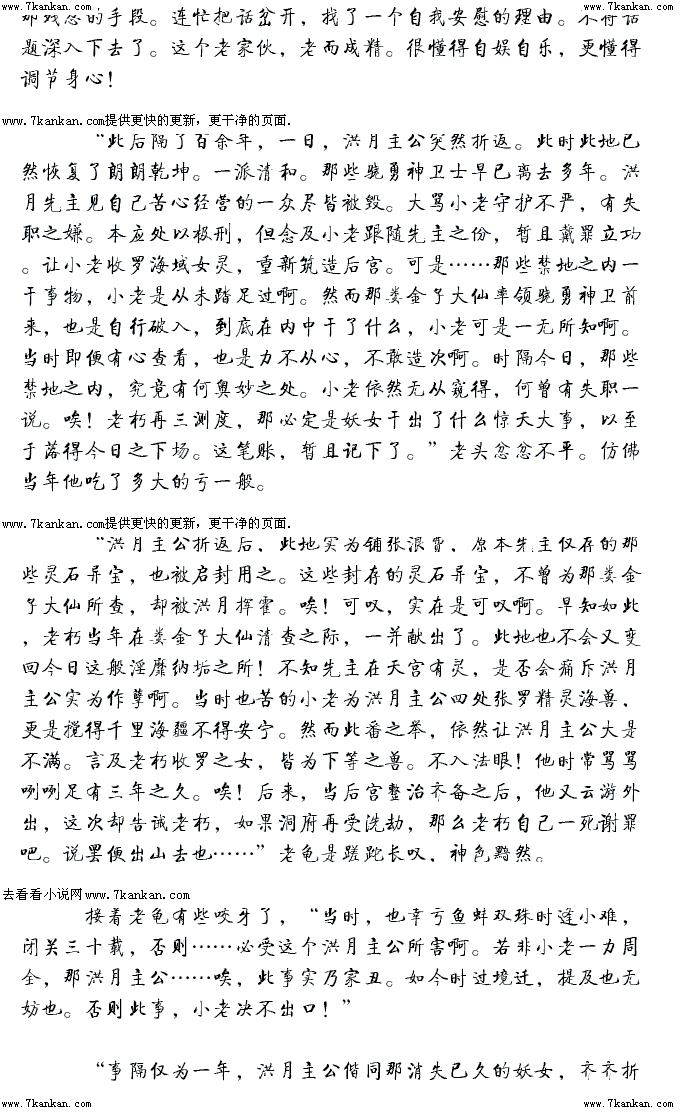 www.7kankan.com www.7kankan.com www.7kankan.com
那残忍的手段。连忙把话岔开，找了一个自我安慰的理由。不将话
题深入下去了。这个老家伙，老而成精。很懂得自娱自乐，更懂得
调节身心！
www.7kankan.com提供更快的更新，更干净的页面.
“此后隔了百余年，一日，洪月主公突然折返。此时此地已
然恢复了朗朗乾坤。一派清和。那些骁勇神卫士早已离去多年。洪
月先主见自己苦心经营的一众尽皆被毁。大骂小老守护不严，有失
职之嫌。本应处以极刑，但念及小老跟随先主之份，暂且戴罪立功
。让小老收罗海域女灵，重新筑造后宫。可是……那些禁地之内一
干事物，小老是从未踏足过啊。然而那娄金子大仙率领骁勇神卫前
来，也是自行破入，到底在内中干了什么，小老可是一无所知啊。
当时即便有心查看，也是力不从心，不敢造次啊。时隔今日，那些
禁地之内，究竟有何奥妙之处。小老依然无从窥得，何曾有失职一
说。唉！老朽再三测度，那必定是妖女干出了什么惊天大事，以至
于落得今日之下场。这笔账，暂且记下了。”老头忿忿不平。仿佛
当年他吃了多大的亏一般。
www.7kankan.com提供更快的更新，更干净的页面.
“洪月主公折返后，此地实为铺张浪费，原本先主仅存的那
些灵石异宝，也被启封用之。这些封存的灵石异宝，不曾为那娄金
子大仙所查，却被洪月挥霍。唉！可叹，实在是可叹啊。早知如此
，老朽当年在娄金子大仙清查之际，一并献出了。此地也不会又变
回今日这般淫靡纳垢之所！不知先主在天宫有灵，是否会痛斥洪月
主公实为作孽啊。当时也苦的小老为洪月主公四处张罗精灵海兽，
更是搅得千里海疆不得安宁。然而此番之举，依然让洪月主公大是
不满。言及老朽收罗之女，皆为下等之兽。不入法眼！他时常骂骂
咧咧足有三年之久。唉！后来，当后宫整治齐备之后，他又云游外
出，这次却告诫老朽，如果洞府再受洗劫，那么老朽自己一死谢罪
吧。说罢便出山去也……”老龟是蹉跎长叹，神色黯然。
去看看小说网www.7kankan.com
接着老龟有些咬牙了，“当时，也幸亏鱼蚌双珠时逢小难，
闭关三十载，否则……必受这个洪月主公所害啊。若非小老一力周
全，那洪月主公……唉，此事实乃家丑。如今时过境迁，提及也无
妨也。否则此事，小老决不出口！”
“事隔仅为一年，洪月主公偕同那消失已久的妖女，齐齐折
www.7kankan.com www.7kankan.com www.7kankan.com